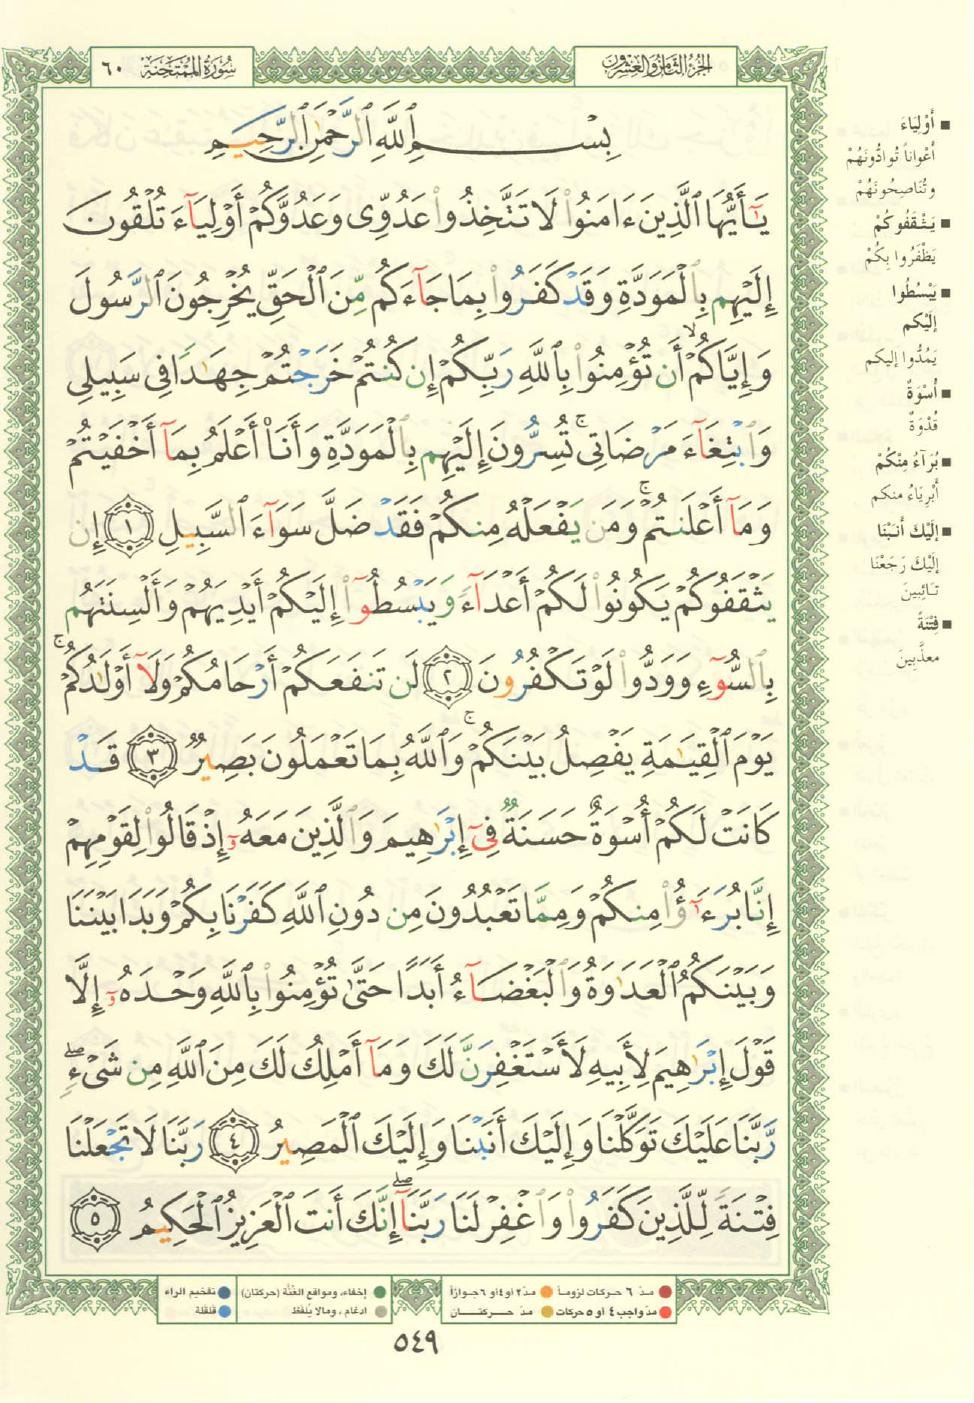 سُورَةُ المُمْتَحنَة ٦٠
الجُزءُ الثَّامِنُ وَالعِشرُون
بِسْمِ ٱللَّهِ ٱلرَّحْمَٰنِ ٱلرَّحِيمِ
يَٰٓأَيُّهَا ٱلَّذِينَ ءَامَنُوا۟ لَا تَتَّخِذُوا۟ عَدُوِّى وَعَدُوَّكُمْ أَوْلِيَآءَ تُلْقُونَ
إِلَيْهِم بِٱلْمَوَدَّةِ وَقَدْ كَفَرُوا۟ بِمَا جَآءَكُم مِّنَ ٱلْحَقِّ يُخْرِجُونَ ٱلرَّسُولَ
وَإِيَّاكُمْ ۙ أَن تُؤْمِنُوا۟ بِٱللَّهِ رَبِّكُمْ إِن كُنتُمْ خَرَجْتُمْ جِهَٰدًا فِى سَبِيلِى
وَٱبْتِغَآءَ مَرْضَاتِى ۚ تُسِرُّونَ إِلَيْهِم بِٱلْمَوَدَّةِ وَأَنَا۠ أَعْلَمُ بِمَآ أَخْفَيْتُمْ
وَمَآ أَعْلَنتُمْ ۚ وَمَن يَفْعَلْهُ مِنكُمْ فَقَدْ ضَلَّ سَوَآءَ ٱلسَّبِيلِ ١ إِن
يَثْقَفُوكُمْ يَكُونُوا۟ لَكُمْ أَعْدَآءً وَيَبْسُطُوٓا۟ إِلَيْكُمْ أَيْدِيَهُمْ وَأَلْسِنَتَهُم
بِٱلسُّوٓءِ وَوَدُّوا۟ لَوْ تَكْفُرُونَ ٢ لَن تَنفَعَكُمْ أَرْحَامُكُمْ وَلَآ أَوْلَٰدُكُمْ ۚ
يَوْمَ ٱلْقِيَٰمَةِ يَفْصِلُ بَيْنَكُمْ ۚ وَٱللَّهُ بِمَا تَعْمَلُونَ بَصِيرٌ ٣ قَدْ
كَانَتْ لَكُمْ أُسْوَةٌ حَسَنَةٌ فِىٓ إِبْرَٰهِيمَ وَٱلَّذِينَ مَعَهُۥٓ إِذْ قَالُوا۟ لِقَوْمِهِمْ
إِنَّا بُرَءَٰٓؤُا۟ مِنكُمْ وَمِمَّا تَعْبُدُونَ مِن دُونِ ٱللَّهِ كَفَرْنَا بِكُمْ وَبَدَا بَيْنَنَا
وَبَيْنَكُمُ ٱلْعَدَٰوَةُ وَٱلْبَغْضَآءُ أَبَدًا حَتَّىٰ تُؤْمِنُوا۟ بِٱللَّهِ وَحْدَهُۥٓ إِلَّا
قَوْلَ إِبْرَٰهِيمَ لِأَبِيهِ لَأَسْتَغْفِرَنَّ لَكَ وَمَآ أَمْلِكُ لَكَ مِنَ ٱللَّهِ مِن شَىْءٍ ۖ
رَّبَّنَا عَلَيْكَ تَوَكَّلْنَا وَإِلَيْكَ أَنَبْنَا وَإِلَيْكَ ٱلْمَصِيرُ ٤ رَبَّنَا لَا تَجْعَلْنَا
فِتْنَةً لِّلَّذِينَ كَفَرُوا۟ وَٱغْفِرْ لَنَا رَبَّنَآ ۖ إِنَّكَ أَنتَ ٱلْعَزِيزُ ٱلْحَكِيمُ ٥
■ أَوْلِيَاءَ
أعْوَاناً تُوَادُّونَهُمْ
وتُنَاصِحُونَهُمْ
■ يَثْقَفُوكُمْ
يَظْفَرُوا بِكُمْ
■ يَبْسُطُوا
إِلَيْكُم
يَمُدُّوا إليكم
■ أُسْوَةٌ
قُدْوَةٌ
■ بُرَآءُ مِنْكُمْ
أَبْرِيَاءُ منكم
■ إِلَيْكَ أَنَبْنَا
إِلَيْكَ رَجَعْنَا
تَائِبِينَ
■ فِتْنَةً
معذَّبِينَ
مدّ ٦ حركات لزوماً مدّ ٢ أو ٤ أو ٦ جوازاً
مدّ واجب ٤ أو ٥ حركات مدّ حركتان
إخفاء، ومواقع الغُنَّة (حركتان) تفخيم الراء
ادغام، وما لا يُلفظ قلقلة
٥٤٩